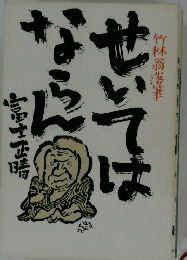 竹林翁落筆
せいては
ならん
富士正晴